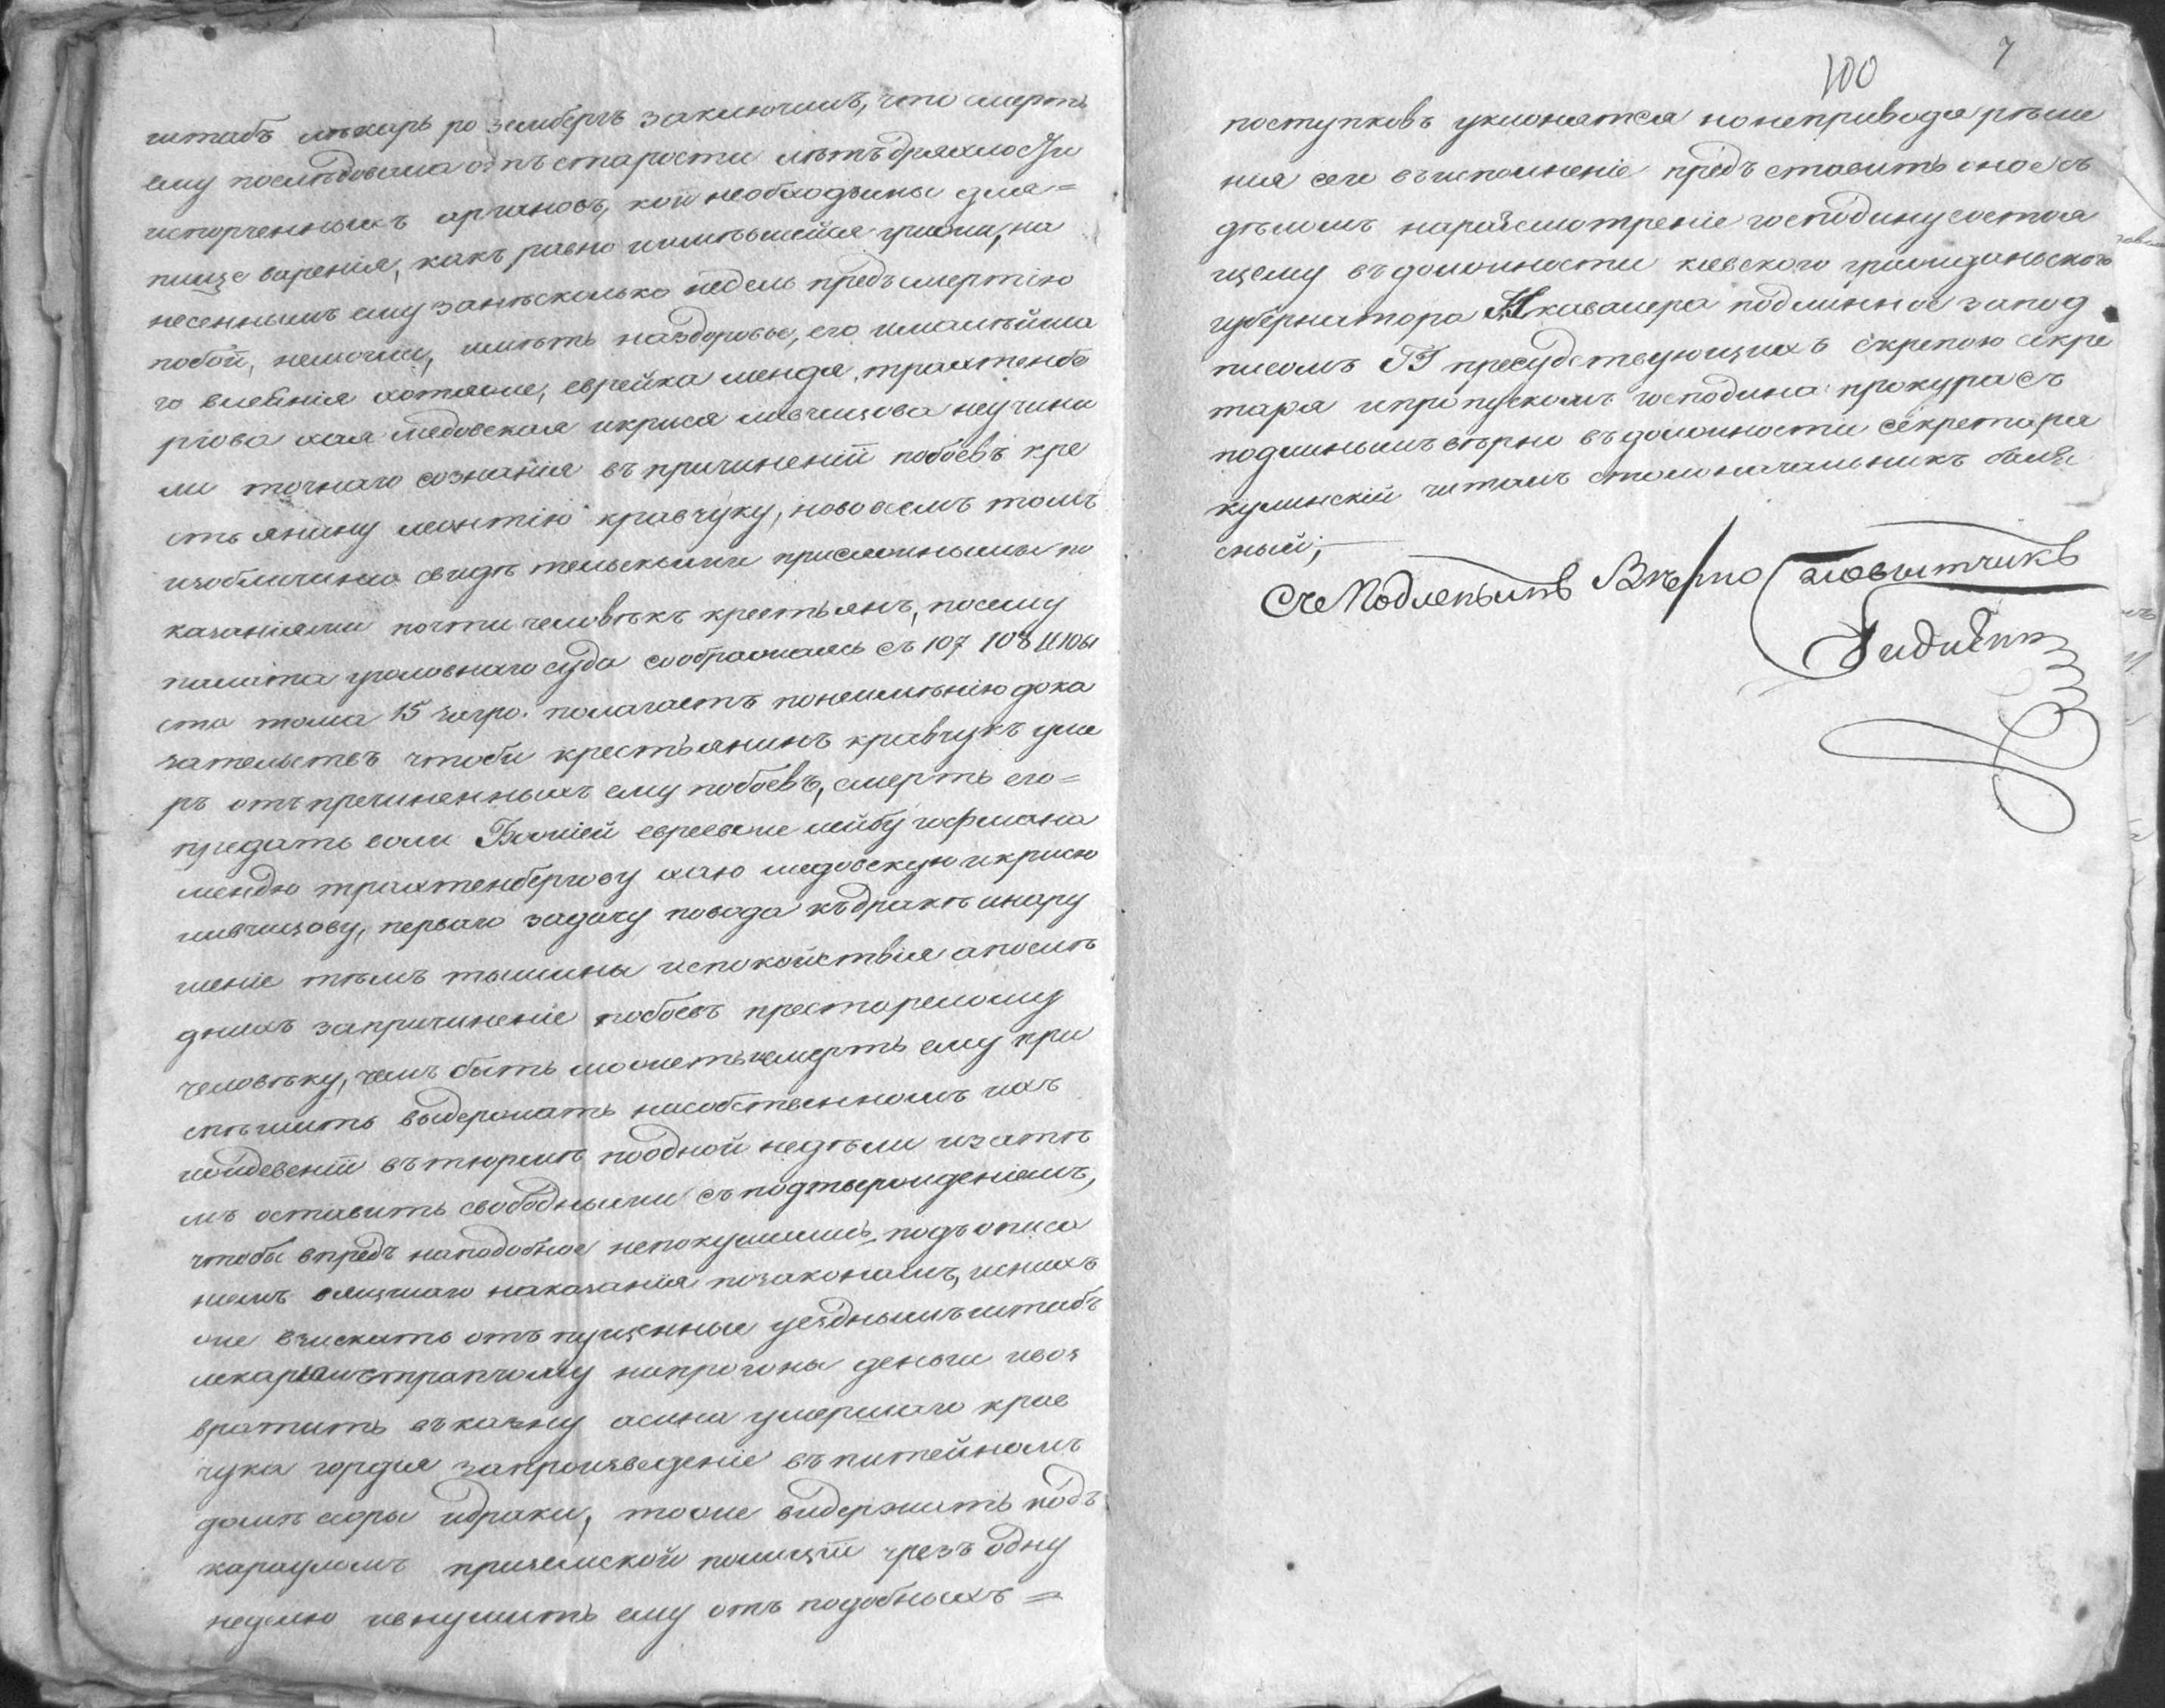 штабъ лѣкарь розембергъ заключилъ, что смерть
ему послѣдовала отъ старости лѣтъ дряхлости
испорченныхъ аргановъ, кои необходимы для=
пище варенія, какъ равно имѣвшейся грижи, на
несенныхъ ему занѣсколько недель предъ смертію
побои, немогли, имѣть наздоровье, его ималѣйша
го влеянія хотяже, еврейка мендя, трахтенбе
ргова хая медовская икрися лившицова неучини
ли точнаго сознанія въ причиненіи побоевъ кре
стьянину леонтію кравчуку, нововсемъ томъ
изобличино свидѣтельскими присяжными по
казаніями почти человѣкъ крестьянъ, посему
палата уголовнаго суда соображаясь съ 107 108
ста тома 15 полагаетъ понеимѣнію дока
зательствъ чтоби крестьянинъ кравчукъ уме
ръ отъ пречиненныхъ ему побоевъ, смерть его=
предать воли Божіей евреевже лейбу гофмана
мендю трахтенбергову хаю медовскую икрисю
лившицову, перваго задачу повода къдракѣ инару
шеніе тѣмъ тышины испокойствія апослѣ
днихъ запричиненіе побоевъ престарелому
человѣку, чемъ быть можетъ исмерть ему при
спѣшить выдержать насобственномъ ихъ
иждевеніи вътюрмѣ поодной недѣли изатѣ
мъ оставить свободными съ подтвержденіемъ,
чтобы впредъ наподобное непокушались подъ описа
ніемъ вящшаго наказанія позаконамъ, иснихъ
же взискать отъпущенные уезднымъ штабъ
лекаремъ истрапчому напрогоны деньги ивоз
вратить въказну асина умершаго крав
чука гордея запроизведеніе въ питейномъ
домѣ сори идраки, тоже видержить подъ
карауломъ приземской полиціи чрезъ одну
неделю ивнушить ему отъ подобныхъ =
100 7
поступковъ уклонятся нонепривода рѣше
нія сего въисполненіе предъ ставить оное съ
дѣломъ наразсмотреніе господину состоя
щему въдолжности кіевского гражданьского
губернатора И кавалера подлинное запод
писомъ ГГ пресудствующихъ скрепою секре
таря ипропускомъ господина прокура съ
подлинымъ вѣрно въдолжности секретаря
кулинскій читалъ столоначальникъ
сный;
Съ Подленымъ Вѣрно повытчикъ